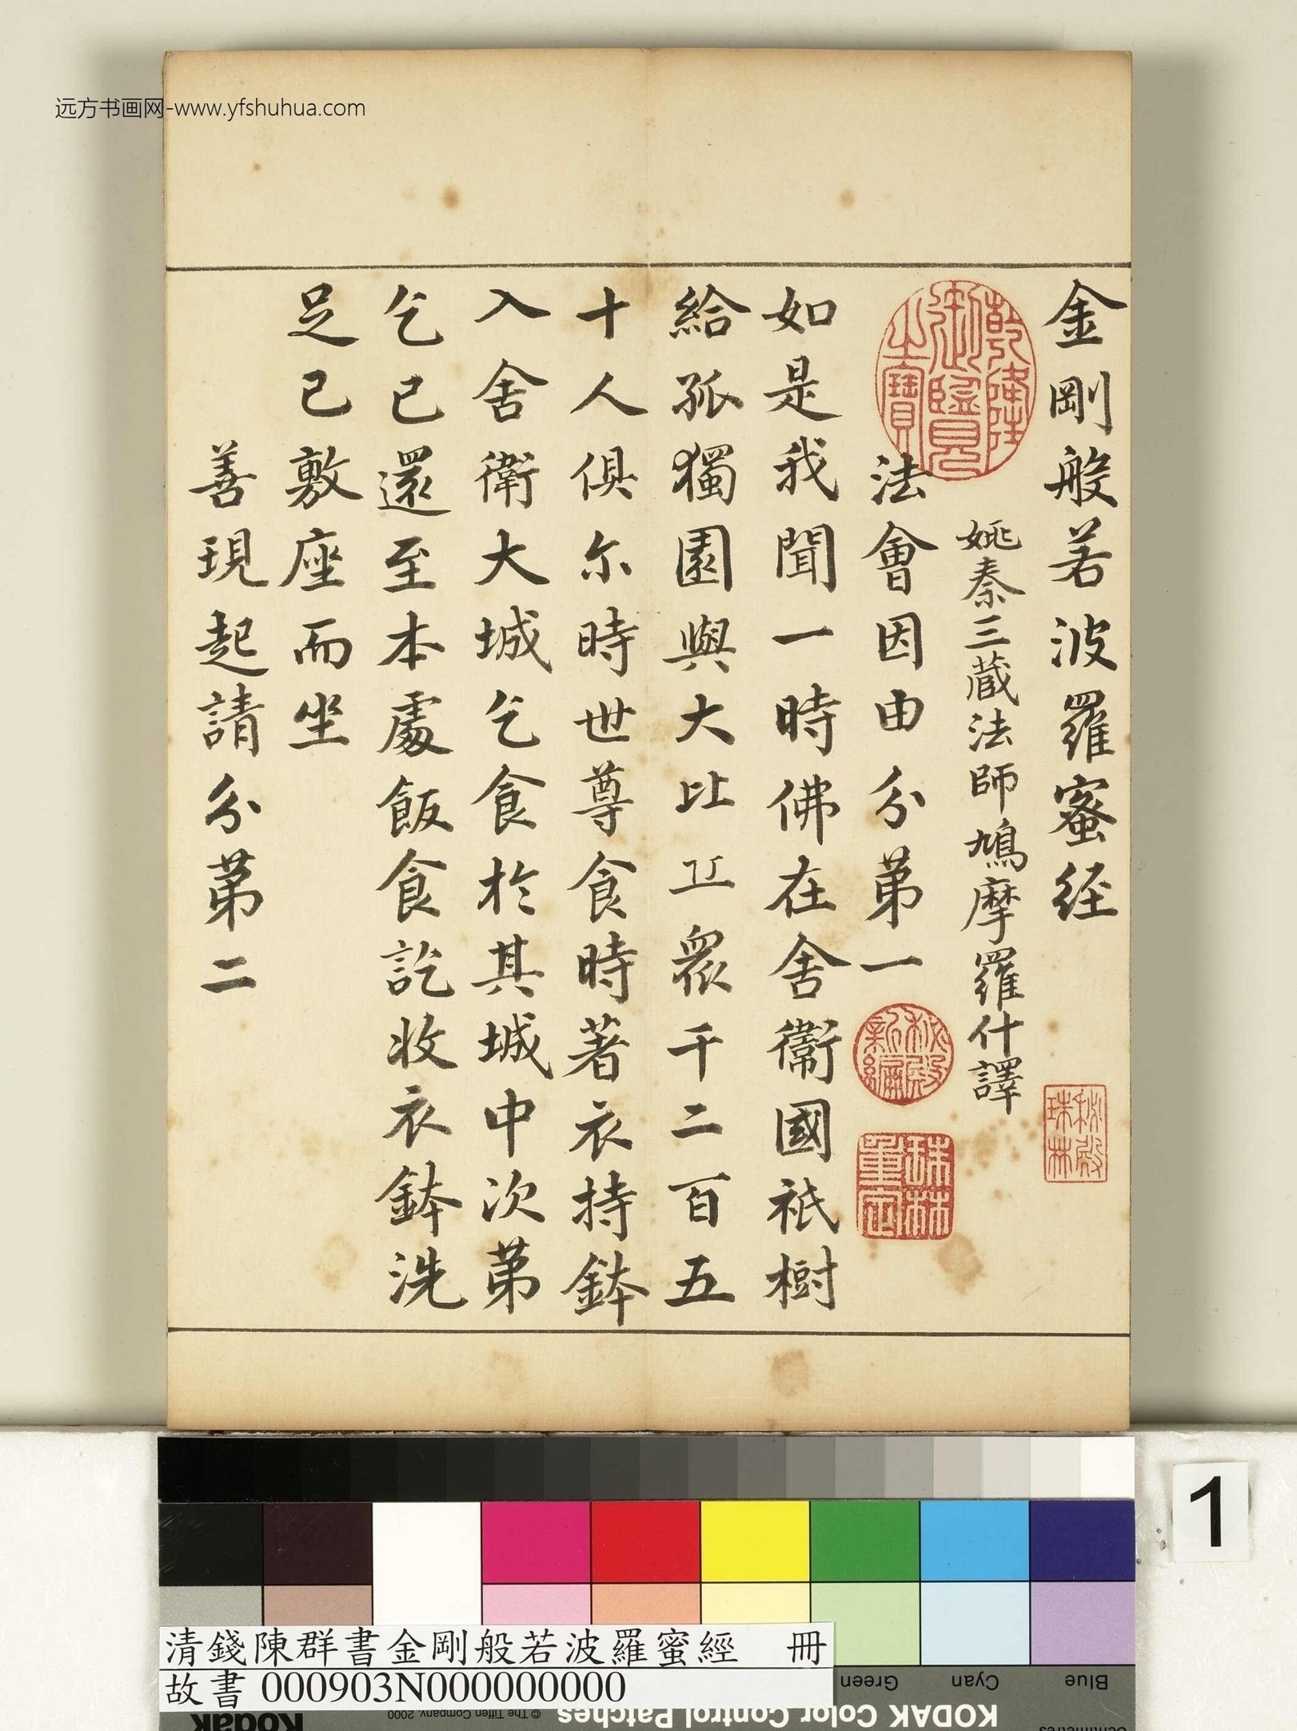 远方书画网-www.yfshuhua.com
金剛般若波羅蜜経
姚秦三蔵法師鳩摩羅什譯
乾隆御覽之寶
法會因由分第一
秘殿新編
珠林重定
秘殿珠林
如是我聞一時佛在舍衛國祇樹
給孤獨園與大比丘眾千二百五
十人俱尔時世尊食時著衣持鉢
入舍衛大城乞食於其城中次第
乞已還至本處飯食訖收衣鉢洗
足已敷座而坐
善現起請分第二
1
清錢陳群書金剛般若波羅蜜經 冊
故書 000903N000000000
Green
Cyan
Blue
Kodak
© The Tiffen Company, 2000
KODAK Color Control Patches
Centimetres